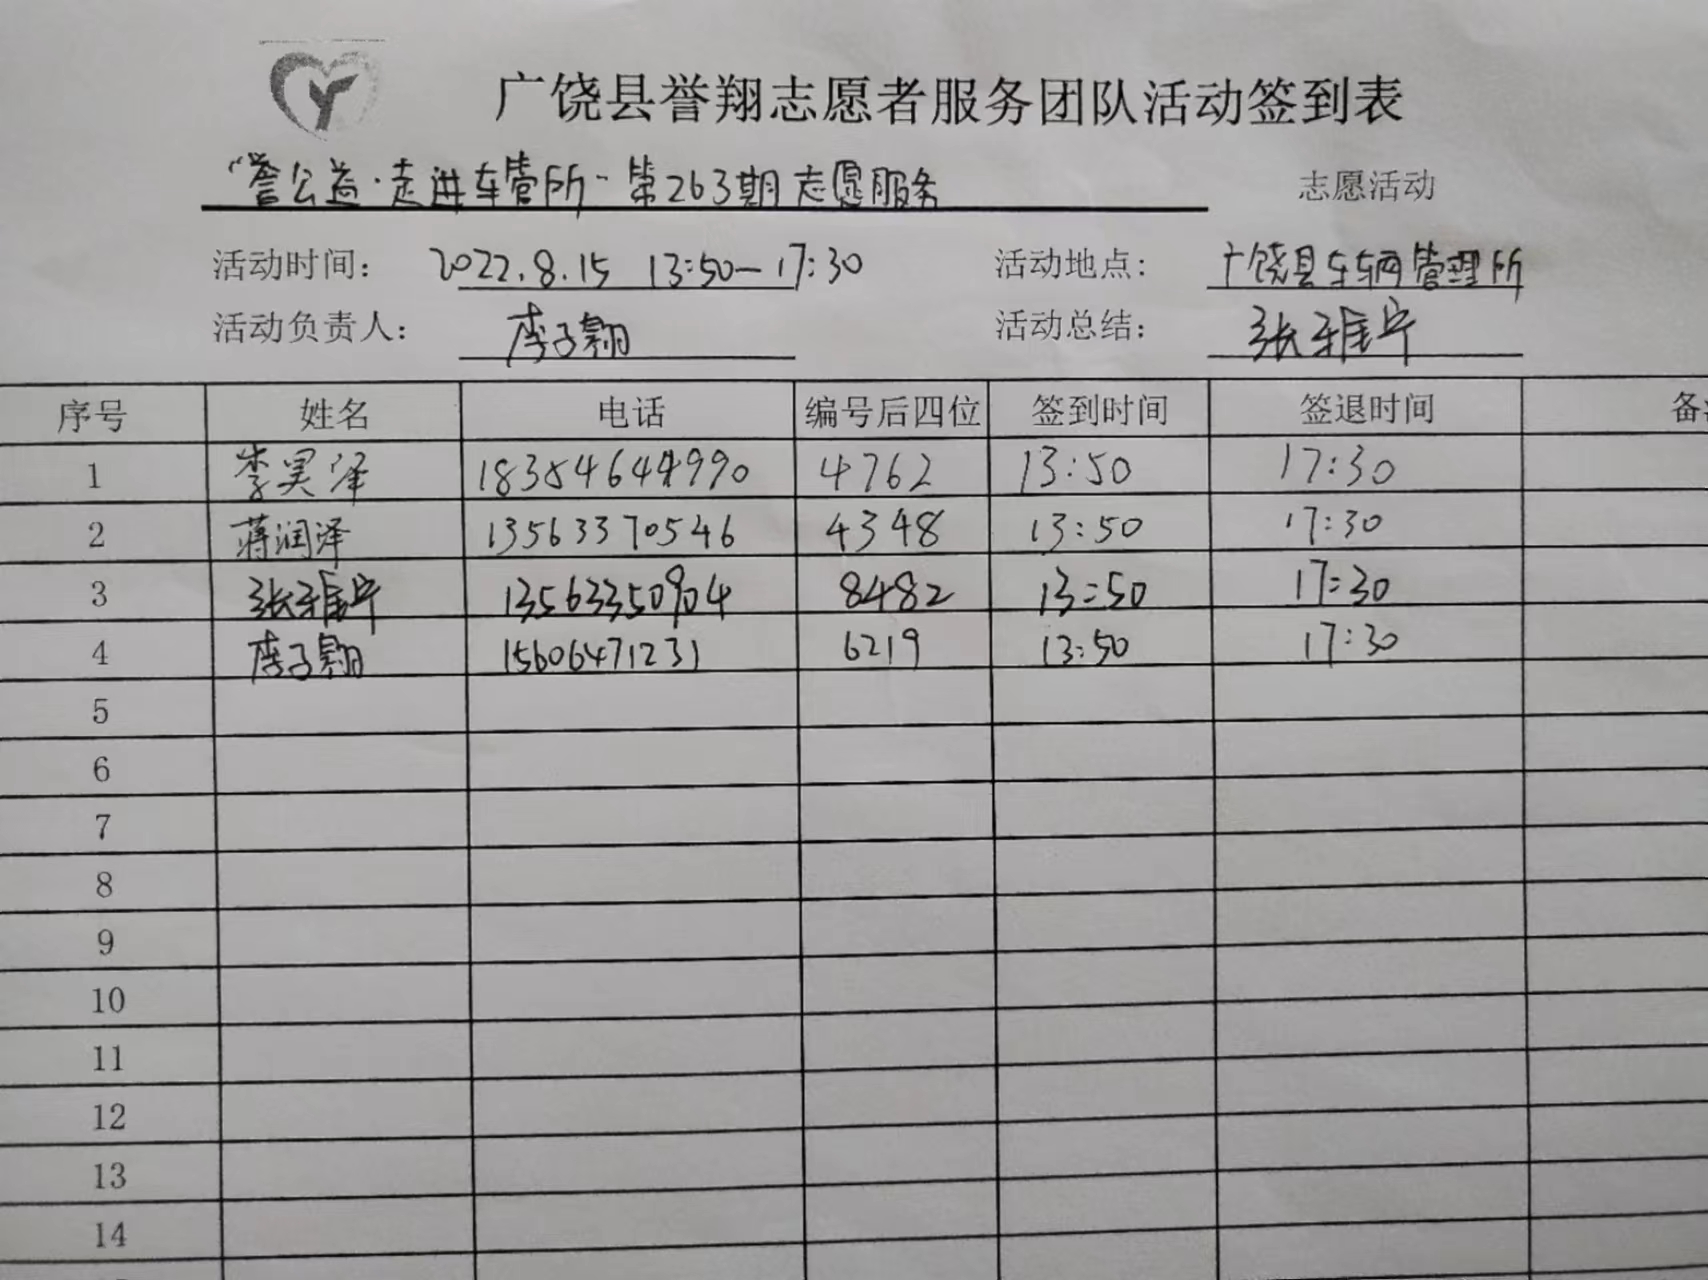 广饶县誉翔志愿者服务团队活动签到表
"誉公益·走进车管所-第263期志愿服务 志愿活动
活动时间: 2022.8.15 13:50-17:30 活动地点: 广饶县车辆管理所
活动负责人: 李子翱 活动总结: 张雅宁
序号 姓名 电话 编号后四位 签到时间 签退时间 备
1 李昊泽 18354644990 4762 13:50 17:30
2 蒋润泽 13563370546 4348 13:50 17:30
3 张雅宁 13563350904 8482 13:50 17:30
4 李子翱 15606471231 6219 13:50 17:30
5
6
7
8
9
10
11
12
13
14